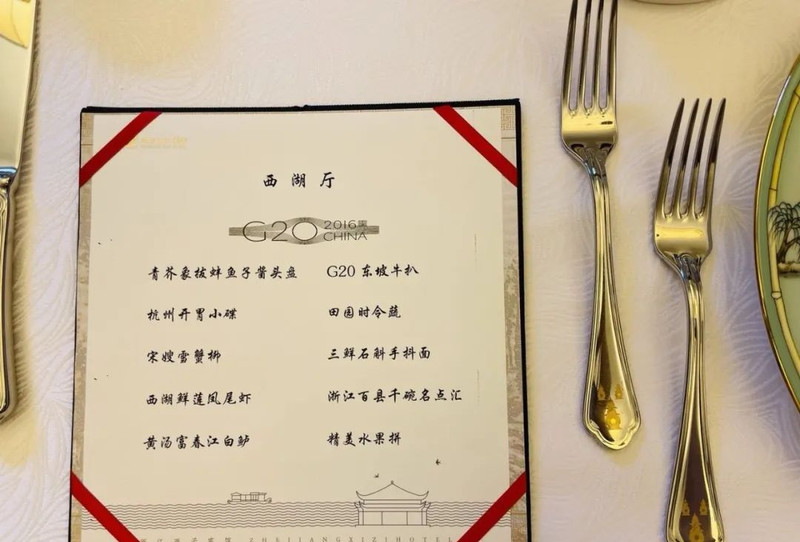 西湖厅
G20 2016 CHINA
青芥象拔蚌鱼子酱头盘
G20 东坡牛扒
杭州开胃小碟
田园时令蔬
宋嫂雪蟹狮
三鲜石斛手抖面
西湖鲜莲凤尾虾
浙江百县千碗名点汇
黄汤富春江白鲈
精美水果拼
ZHEJIANGXIZIHOTEL